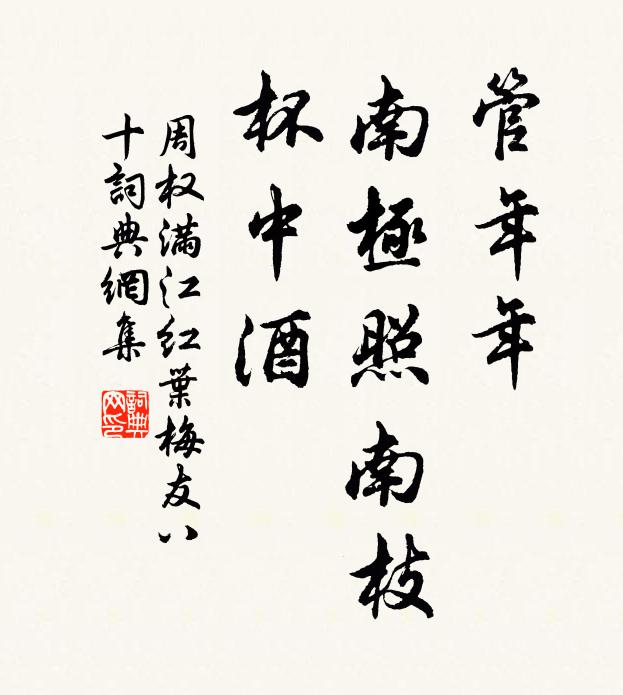 管年年
南極照南枝
杯中酒
周权满江红葉梅友八
十詞典網集
詞典网印